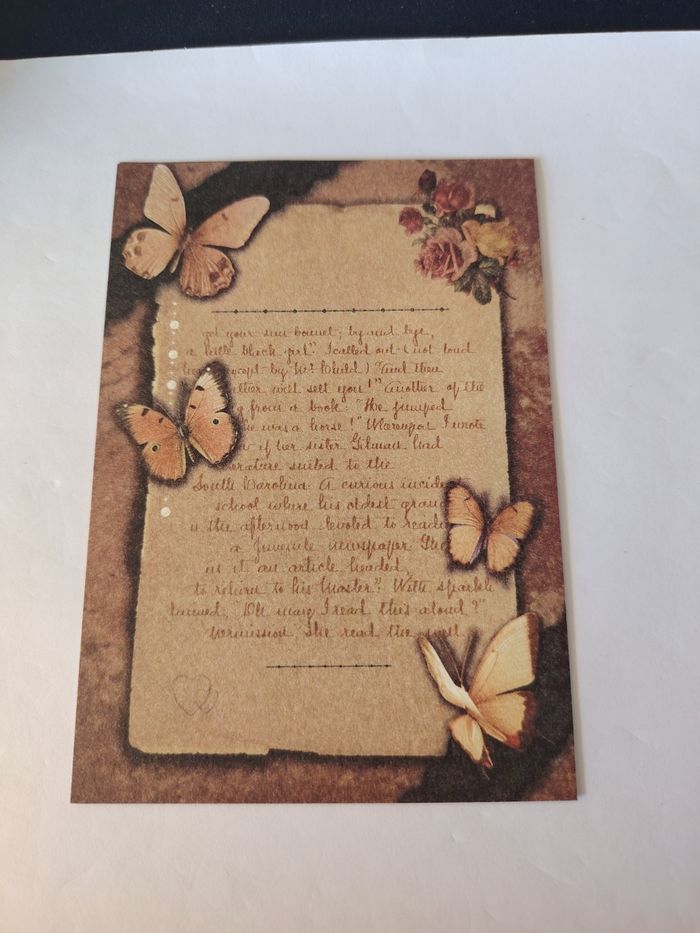 get your sun bonnet; by and bye,
a little black girl". I called out (not loud
except by Mrs Child) "and then
will sell you!" Another of the
from a book: "He jumped
he was a horse!" I wrote
if her sister Gilman had
suited to the
South Carolina. A curious
school where his oldest
the afternoon devoted to
a juvenile newspaper
in it an article headed,
to return to his Master". With
turned, "Oh may I read this aloud?"
She read the